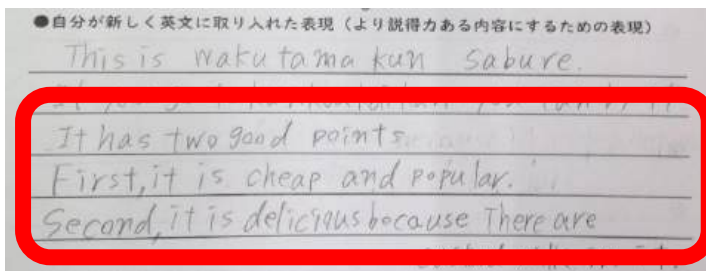 ●自分が新しく英文に取り入れた表現（より説得力ある内容にするための表現）
This is wakutama kun sabure.
It has two good points.
First, it is cheap and popular.
Second, it is delicious because There are